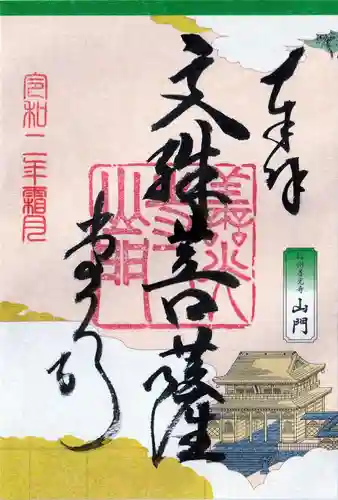 奉拝
信州善光寺
山門
文殊菩薩
善光寺
令和二年霜月